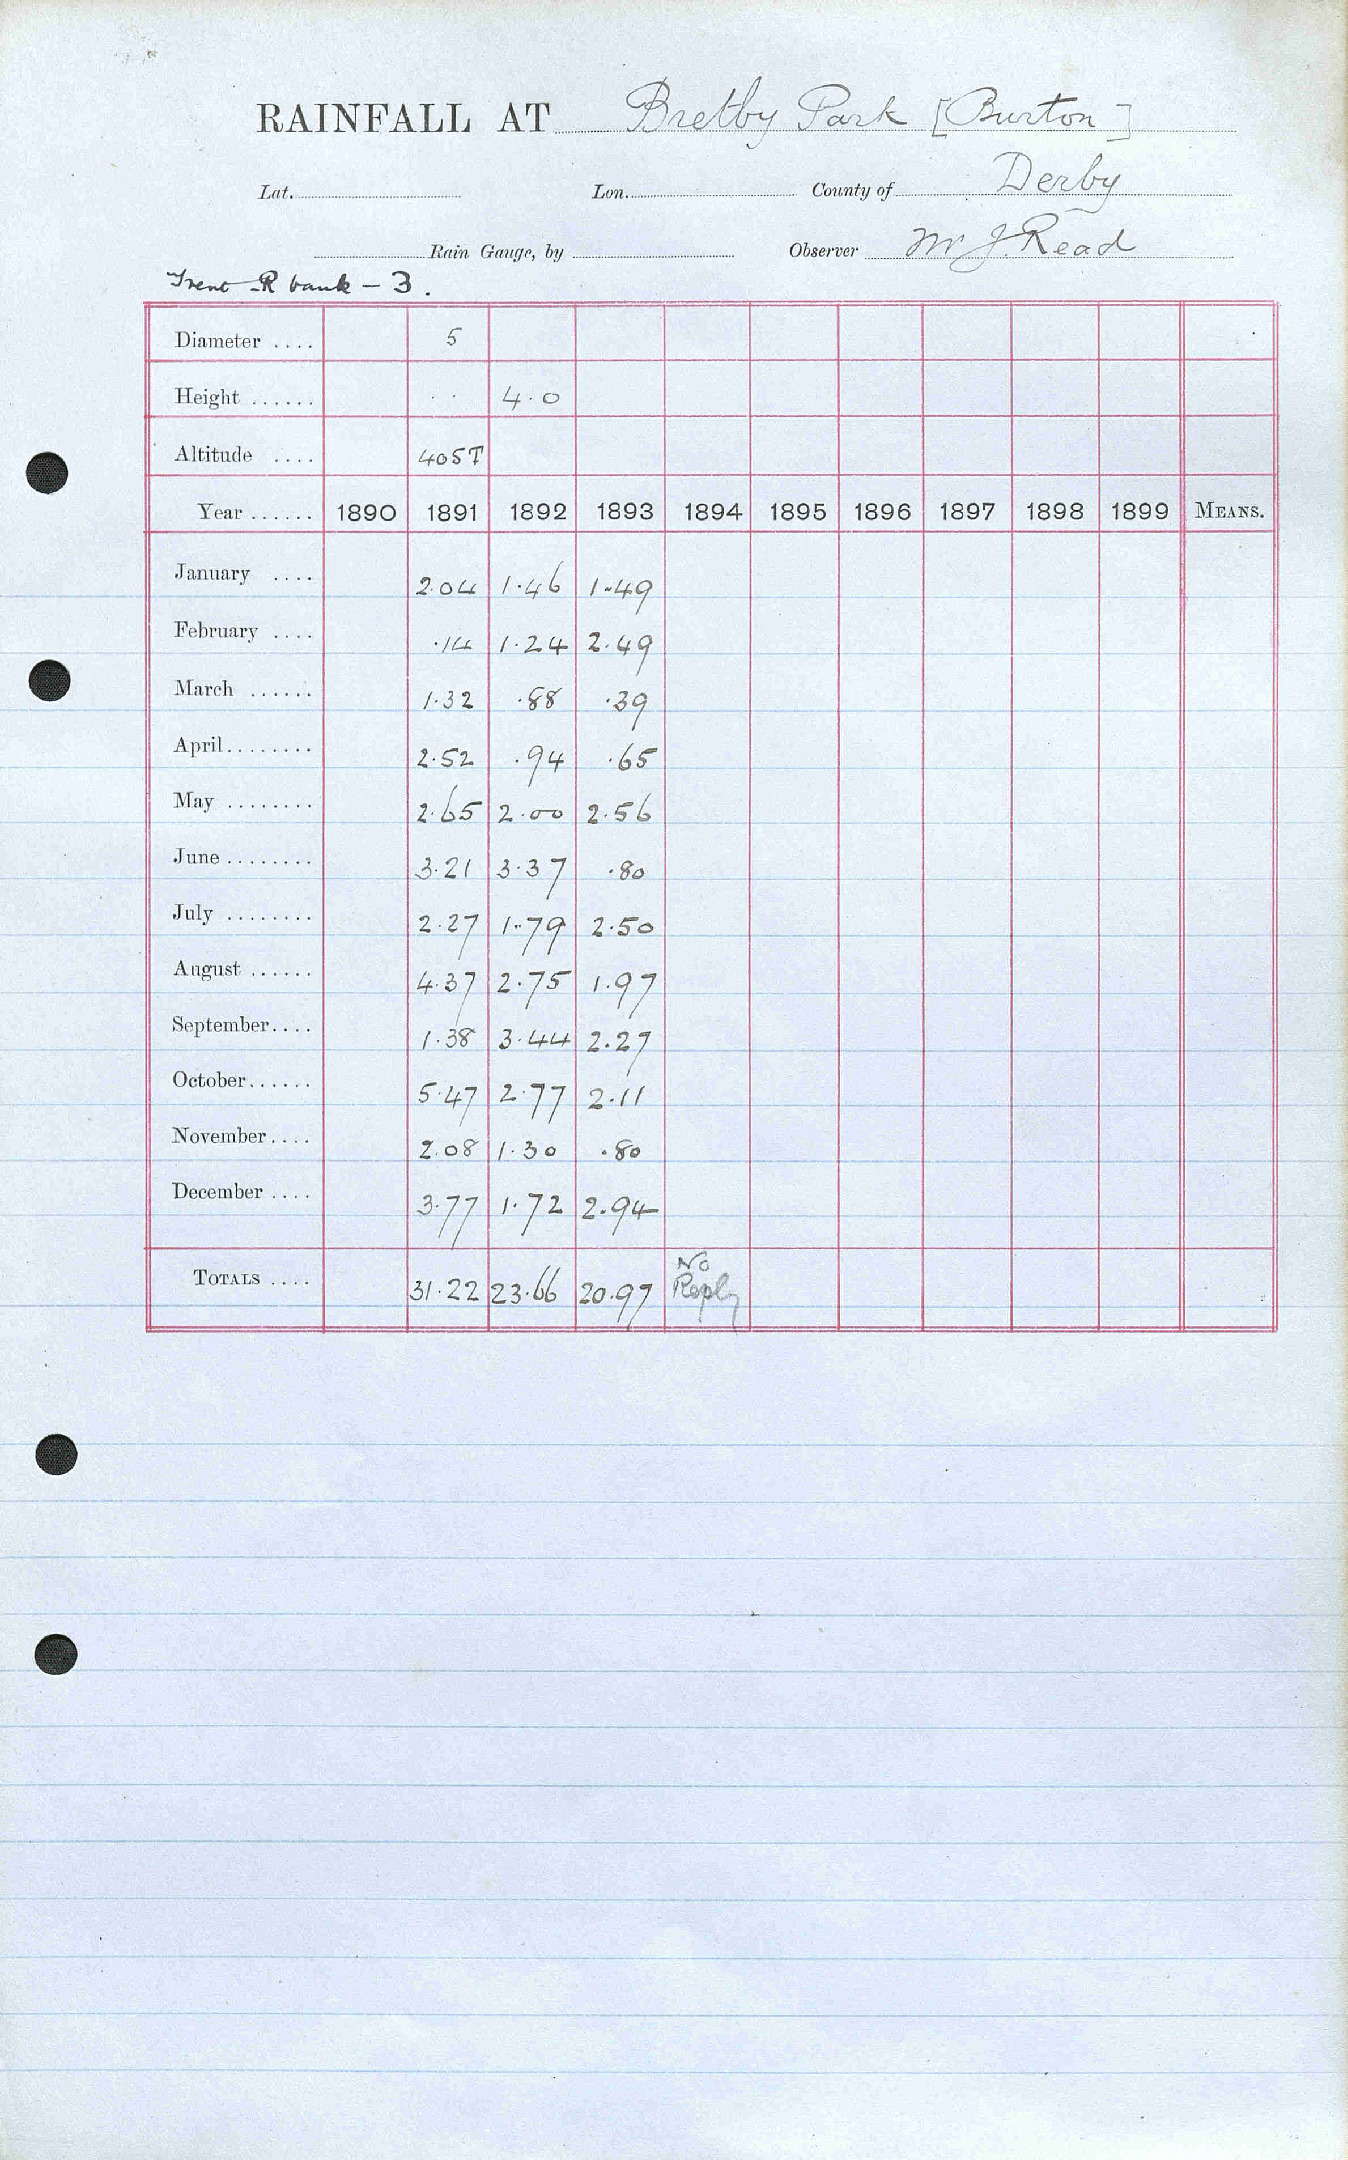 RAINFALL AT Bretby Park [Burton]
Lat. Lon. County of Derby
Rain Gauge, by Observer Mr J. Read
Trent R bank - 3.
Diameter .... 5
Height ...... . . 4.0
Altitude .... 405T
Year ...... 1890 1891 1892 1893 1894 1895 1896 1897 1898 1899 MEANS.
January .... 2.04 1.46 1.49
February .... .14 1.24 2.49
March ...... 1.32 .88 .39
April........ 2.52 .94 .65
May ........ 2.65 2.00 2.56
June ........ 3.21 3.37 .80
July ........ 2.27 1.79 2.50
August ...... 4.37 2.75 1.97
September.... 1.38 3.44 2.27
October...... 5.47 2.77 2.11
November.... 2.08 1.30 .80
December .... 3.77 1.72 2.94
TOTALS .... 31.22 23.66 20.97 No Reply